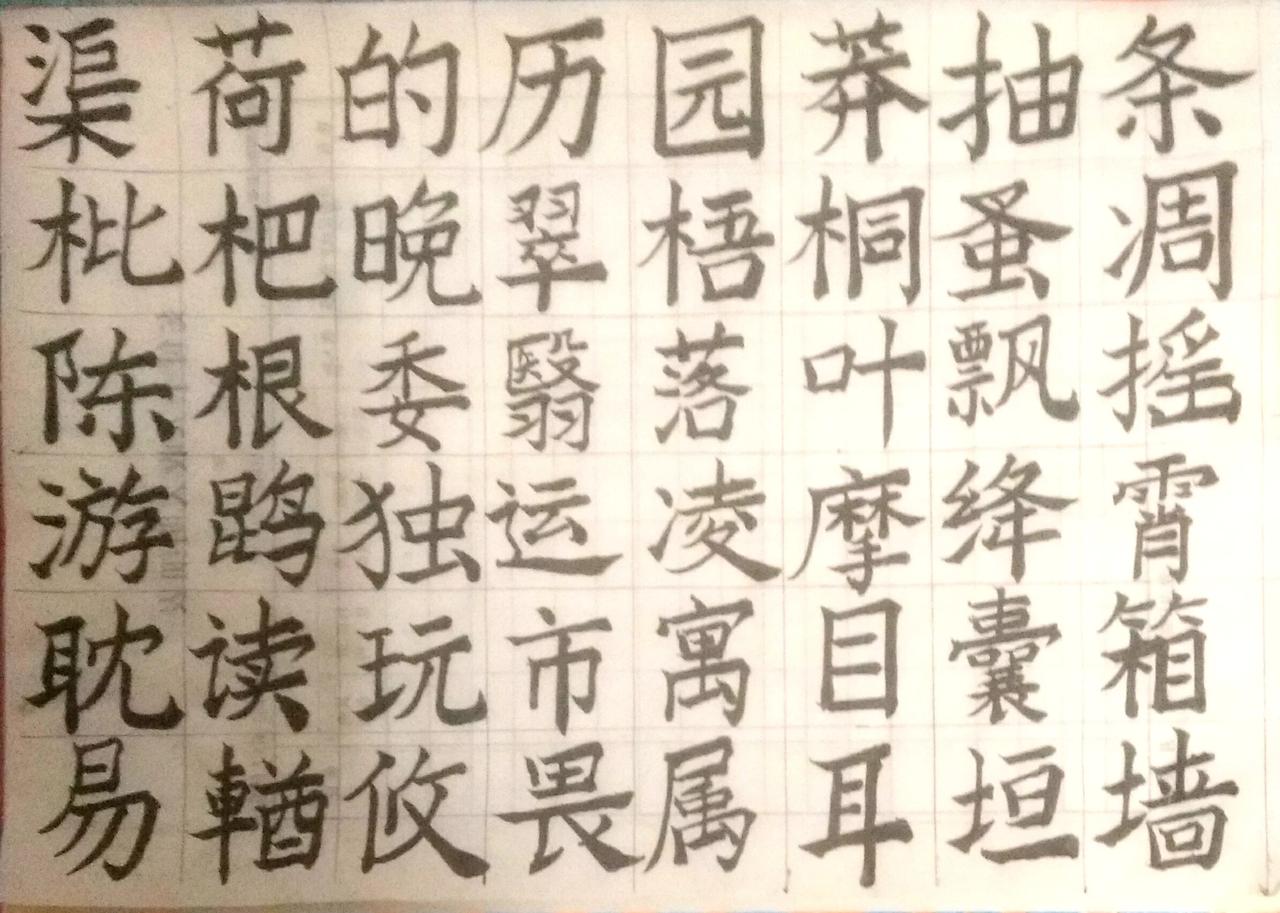 渠荷的历园莽抽条
枇杷晚翠梧桐蚤凋
陈根委翳落叶飘摇
游鹍独运凌摩绛霄
耽读玩市寓目囊箱
易輶攸畏属耳垣墙